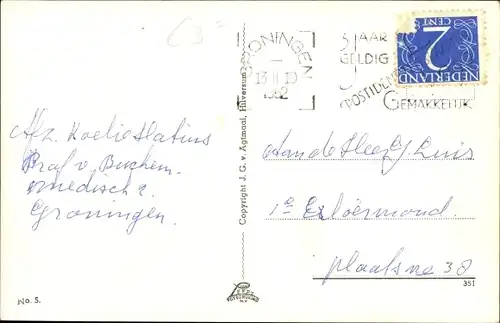 GRONINGEN
13 II 19
1952
5 JAAR
GELDIG
POSTIDEN
GEMAKKELIJK
2
CENT
NEDERLAND
Afz.
Prof v. Buchem.
medisch
Groningen.
Copyright J. G. v. Agtmaal, Hilversum
Aan de Heer G. Luis
1e Exloërmond.
plaatsno 38
No. 5.
351